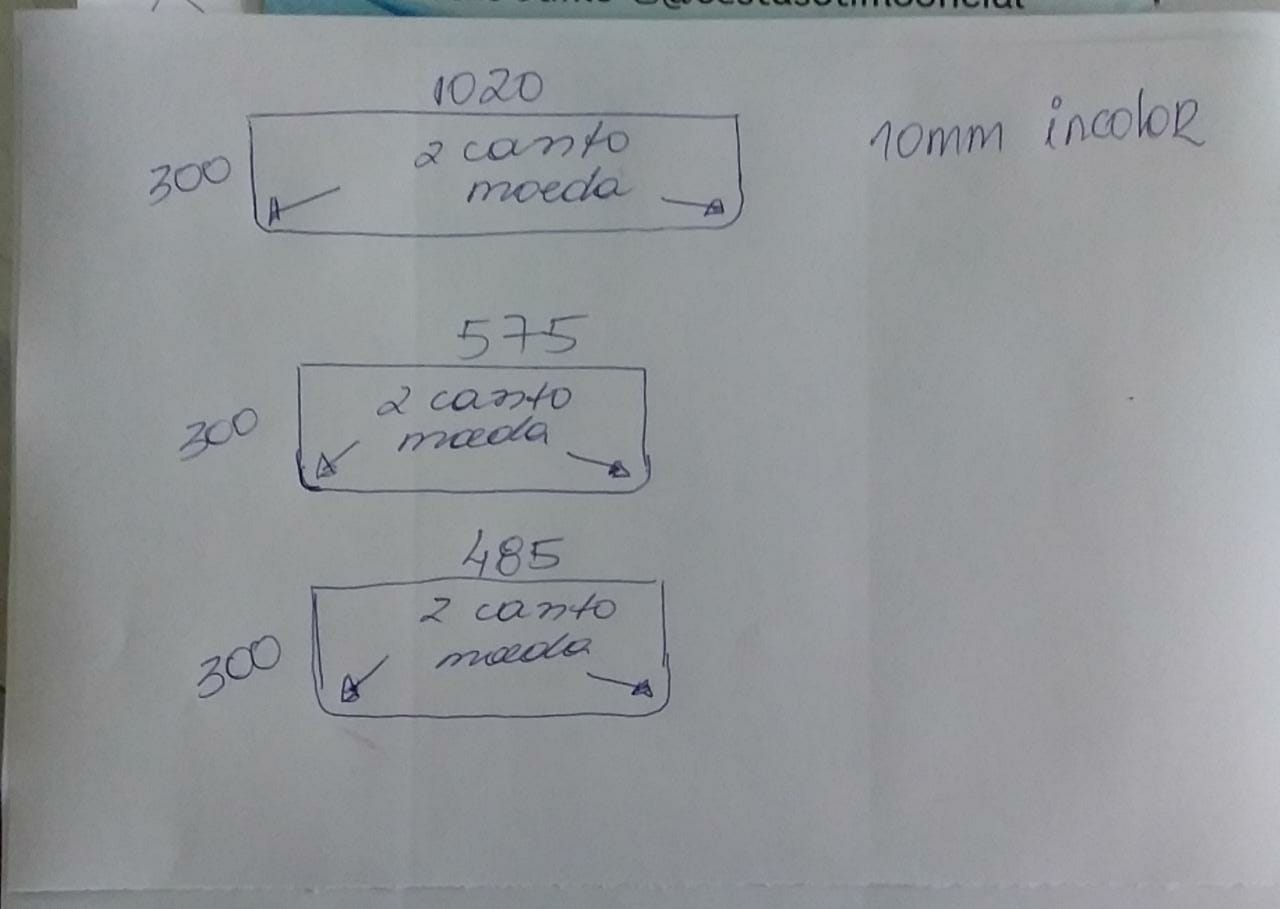 1020
10mm incoloR
2 canto
moeda
300
575
2 canto
moeda
300
485
2 canto
moeda
300